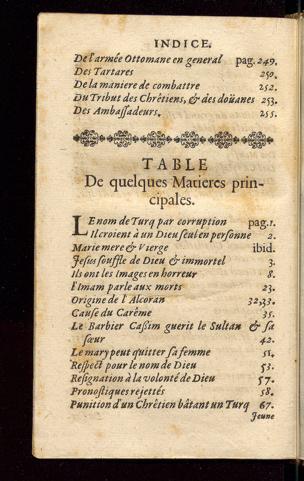 INDICE.
De l'armée Ottomane en general pag. 249.
Des Tartares 250.
De la maniere de combattre 252.
Du Tribut des Chrêtiens, & des doüanes 253.
Des Ambaſſadeurs. 255.
TABLE
De quelques Matieres prin-
cipales.
LE nom de Turq par corruption pag. 1.
Il croient à un Dieu ſeul en perſonne 2.
Marie mere & Vierge ibid.
Jeſus ſouffle de Dieu & immortel 3.
Ils ont les Images en horreur 8.
l'Imam parle aux morts 23.
Origine de l Alcoran 32,33.
Cauſe du Carême 35.
Le Barbier Caſſim guerit le Sultan & ſa
ſœur 42.
Le mary peut quitter ſa femme 51.
Reſpect pour le nom de Dieu 53.
Reſignation à la volonté de Dieu 57.
Pronoſtiques rejettés 58.
Punition d'un Chrêtien bâtant un Turq 67.
Jeune